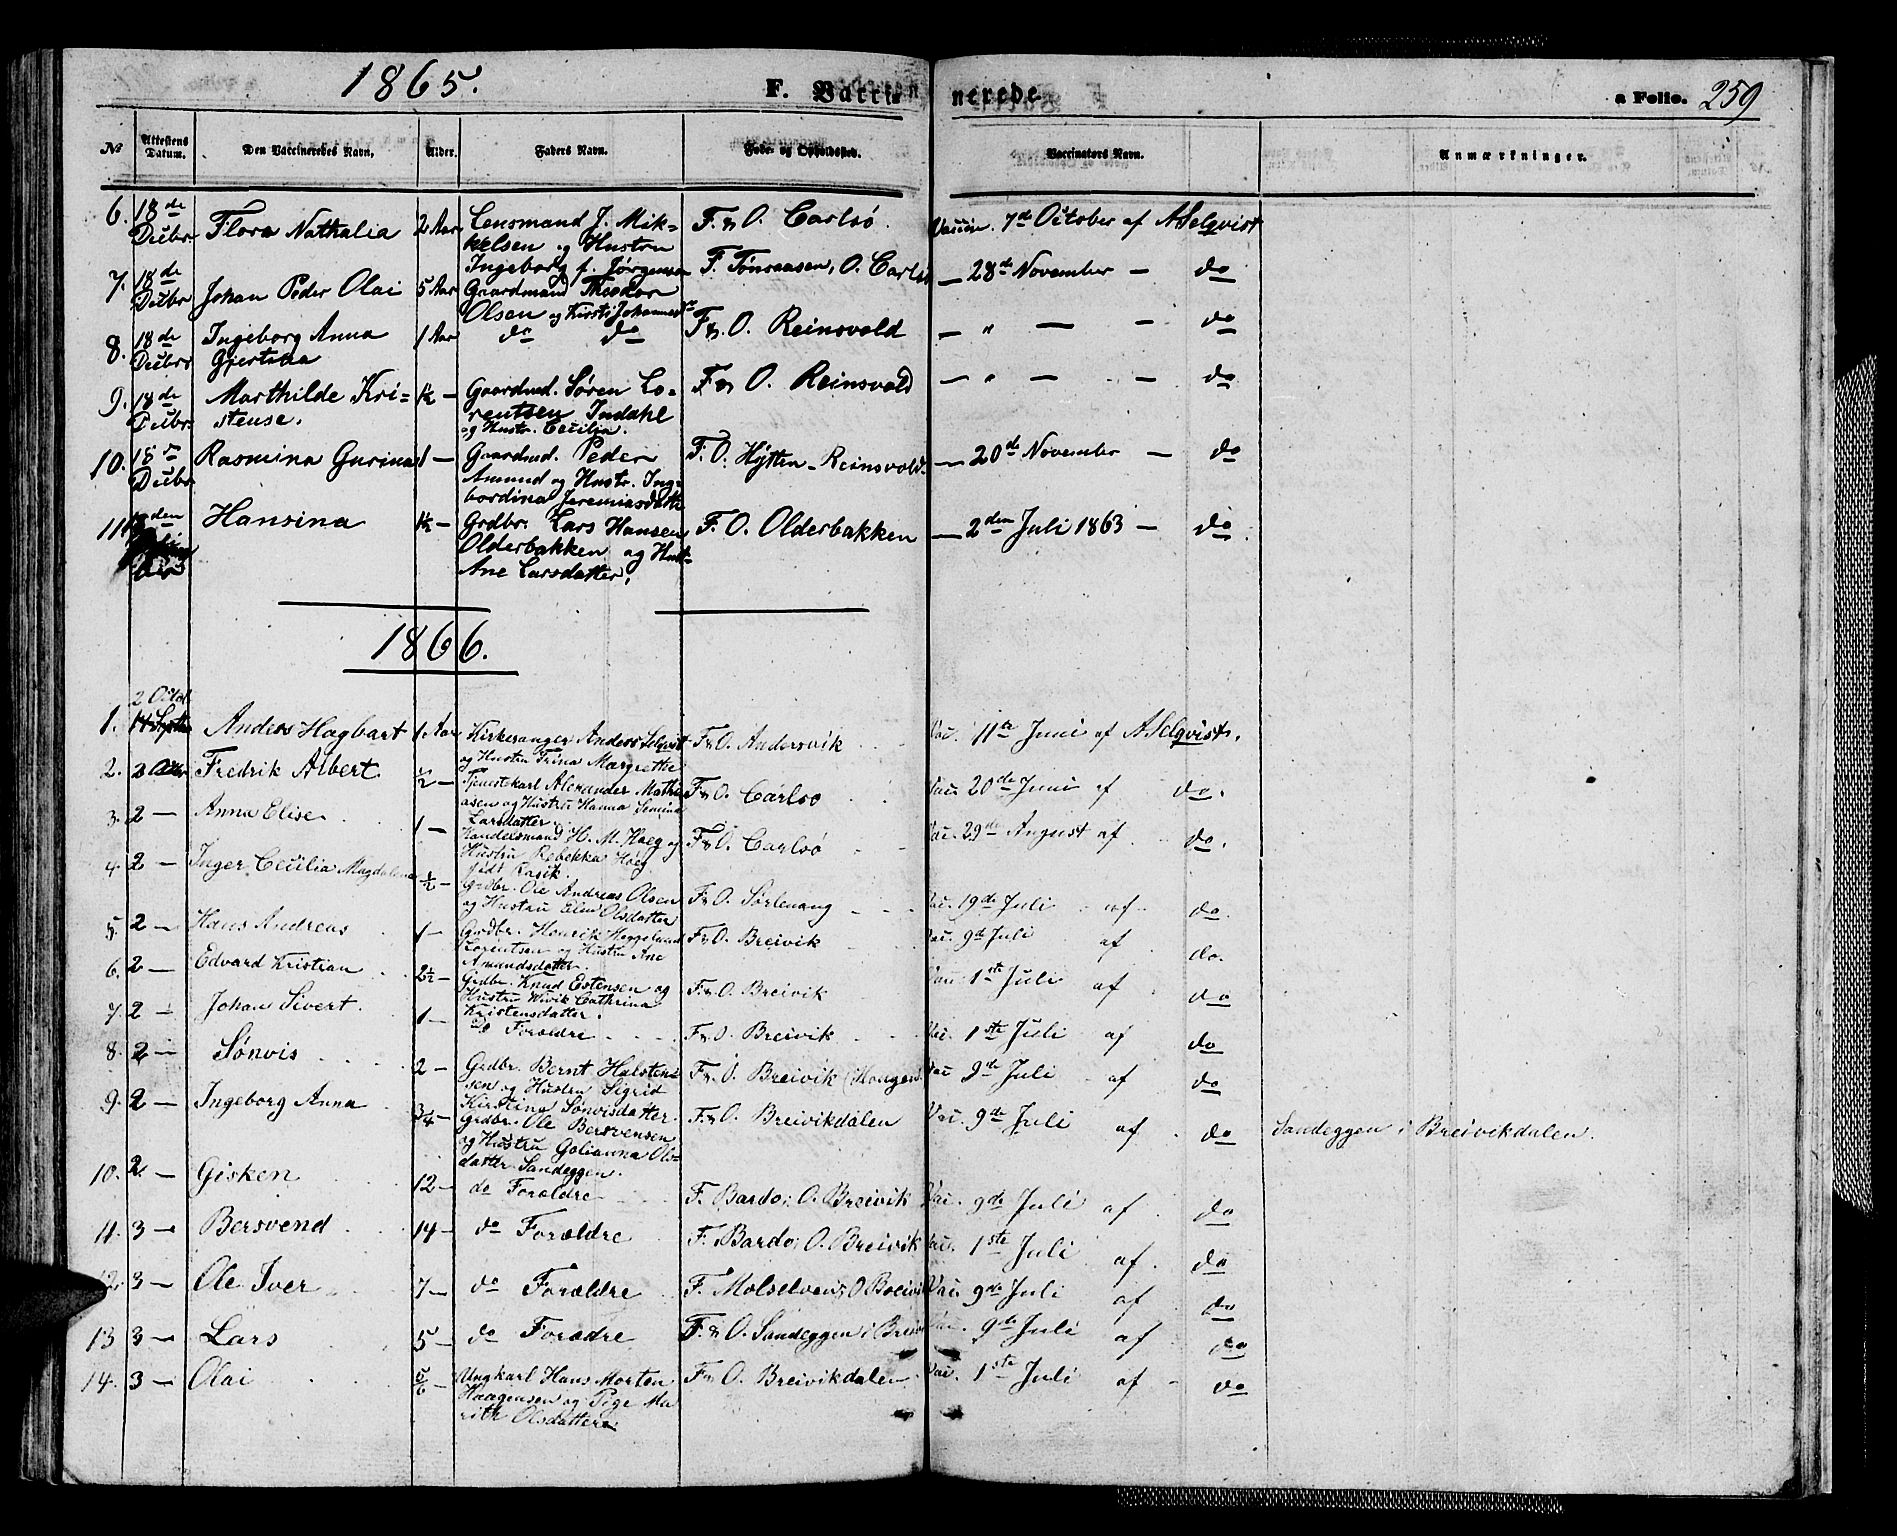 1865. F. Vaccinerede a Folio. 259
No Attestens Datum. Den Vaccineredes Navn. Alder. Faders Navn. Føde- og Opholdssted. Vaccinators Navn. Anmærkninger.
6. 18de Decbr Flora Nathalia 2 Aar Lensmand J. Mik= F. & O. Carlsø. Vaccin. 7de October af A Selqvist
kelsen og Hustru
Ingeborg f. Jørgensen
7. 18de Decbr Johan Peder Olai 5 Aar Gaardmand Theodor F. Tønsaasen, O. Carlsø — 28de November — do
Olsen og Kirsti Johannesdr
8. 18de Decbr Ingeborg Anna 1 Aar do do F & O. Reinsvold — " — — do
Gjertina
9. 18de Decbr Marthilde Kri= 1½ — Gaardmd. Søren Lo- F & O. Reinsvold — " — — do
stense. rentsen Indahl
og Hustr. Cecilia.
10. 18de Decbr Rasmina Gurina 1 — Gaardmd. Peder F. O. Hytten - Reinsvold — 20de November — do
Amund og Hustr. Ing=
bordina Jeremiasdatter
11 Hansina 1½ — Grdbr. Lars Hansen F. O. Olderbakken — 2den Juli 1863 — do.
Olderbakken og Hustr.
Ane Larsdatter.
1866.
2 Octob
1. 14 Septbr Anders Hagbart 1. Aar Kirkesanger Anders Selqvist F & O. Andersvik Vac. 11te Juni af A Selqvist.
og Hustru Trina Margrethe
2. 2 Octbr Fredrik Albert ½ — Tjenestekarl Alexander Mathi F & O. Carlsø Vac. 20de Juni af do.
asen og Hustru Hanna Semina
Larsdatter.
3. 2 — Anna Elise 1 — Handelsmand H. M. Høeg og F & O. Carlsø Vac. 29de August af do.
Hustru Rebekka Høeg
født
4. 2 — Inger Cecilia Magdalena ½ — Grdbr. Ole Andreas Olsen F & O. Sørlenang Vac. 19de Juli af do.
og Hustru Elen Olsdatter
5. 2 — Hans Andreas 1 — Grdbr. Henrik Heggelund F & O. Breivik Vac. 9de Juli af do.
Lorentsen og Hustru Ane
Amundsdatter.
6. 2 — Edvard Kristian 2½ — Grdbr. Knud Estensen og F. & O. Breivik Vac. 1ste Juli af do
Hustru Wivik Cathrina
Kristensdatter.
7. 2 — Johan Sivert. 1 — do Forældre F. & O. Breivik Vac. 1ste Juli af do
8. 2 — Sønvis 2 — Grdbr. Bernt Halsten= F. & O. Breivik (Haugen) Vac 9de Juli af do
sen og Hustru Sigrid
Kirstina Sønvisdatter.
9. 2 — Ingeborg Anna ¾ — Grdbr. Ole Bersvensen F. & O. Breivikdalen Vac. 9de Juli af do Sandeggen i Breivikdalen.
og Hustru Golianna Ols=
datter Sandeggen.
10. 2 — Gisken 12 — do Forældre F. Bardo; O. Breivik Vac. 9de Juli af do
11. 3 — Bersvend 14 — do Forældre F. Bardo; O. Breivik Vac. 1ste Juli af do
12. 3 — Ole Iver 7 — do Forældre F. Molselven; O Breivik Vac. 9de Juli af do
13 3 — Lars 5 — do Forædre F. & O. Sandeggen i Breiv Vac. 9de Juli af do
14. 3 — Olai 5/6 — Ungkarl Hans Morten F & O. Breivikdalen Vac. 1ste Juli af do
Haagensen og Pige Ma
rith Olsdatter